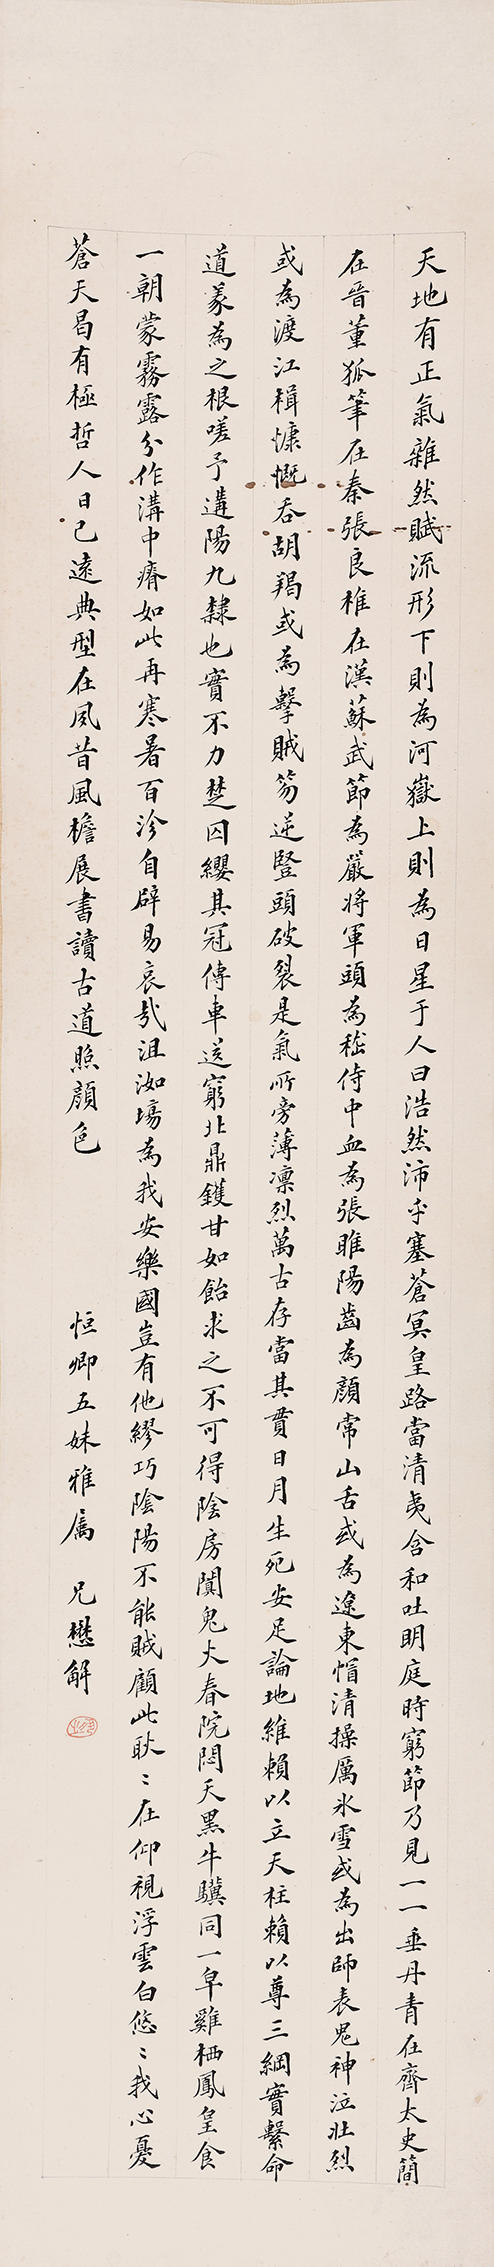 天地有正氣雜然賦流形下則為河嶽上則為日星于人曰浩然沛乎塞蒼冥皇路當清夷含和吐明庭時窮節乃見一一垂丹青在齊太史簡
在晉董狐筆在秦張良椎在漢蘇武節為嚴將軍頭為嵇侍中血為張睢陽齒為顏常山舌或為遼東帽清操厲冰雪或為出師表鬼神泣壯烈
或為渡江楫慷慨吞胡羯或為擊賊笏逆豎頭破裂是氣所旁薄凜烈萬古存當其貫日月生死安足論地維賴以立天柱賴以尊三綱實繫命
道義為之根嗟予遘陽九隸也實不力楚囚纓其冠傳車送窮北鼎鑊甘如飴求之不可得陰房闃鬼火春院閟天黑牛驥同一皁雞栖鳳皇食
一朝蒙霧露分作溝中瘠如此再寒暑百沴自辟易哀哉沮洳場為我安樂國豈有他繆巧陰陽不能賊顧此耿〻在仰視浮雲白悠〻我心憂
蒼天曷有極哲人日已遠典型在夙昔風檐展書讀古道照顏色
恒卿五妹雅屬 兄懋解